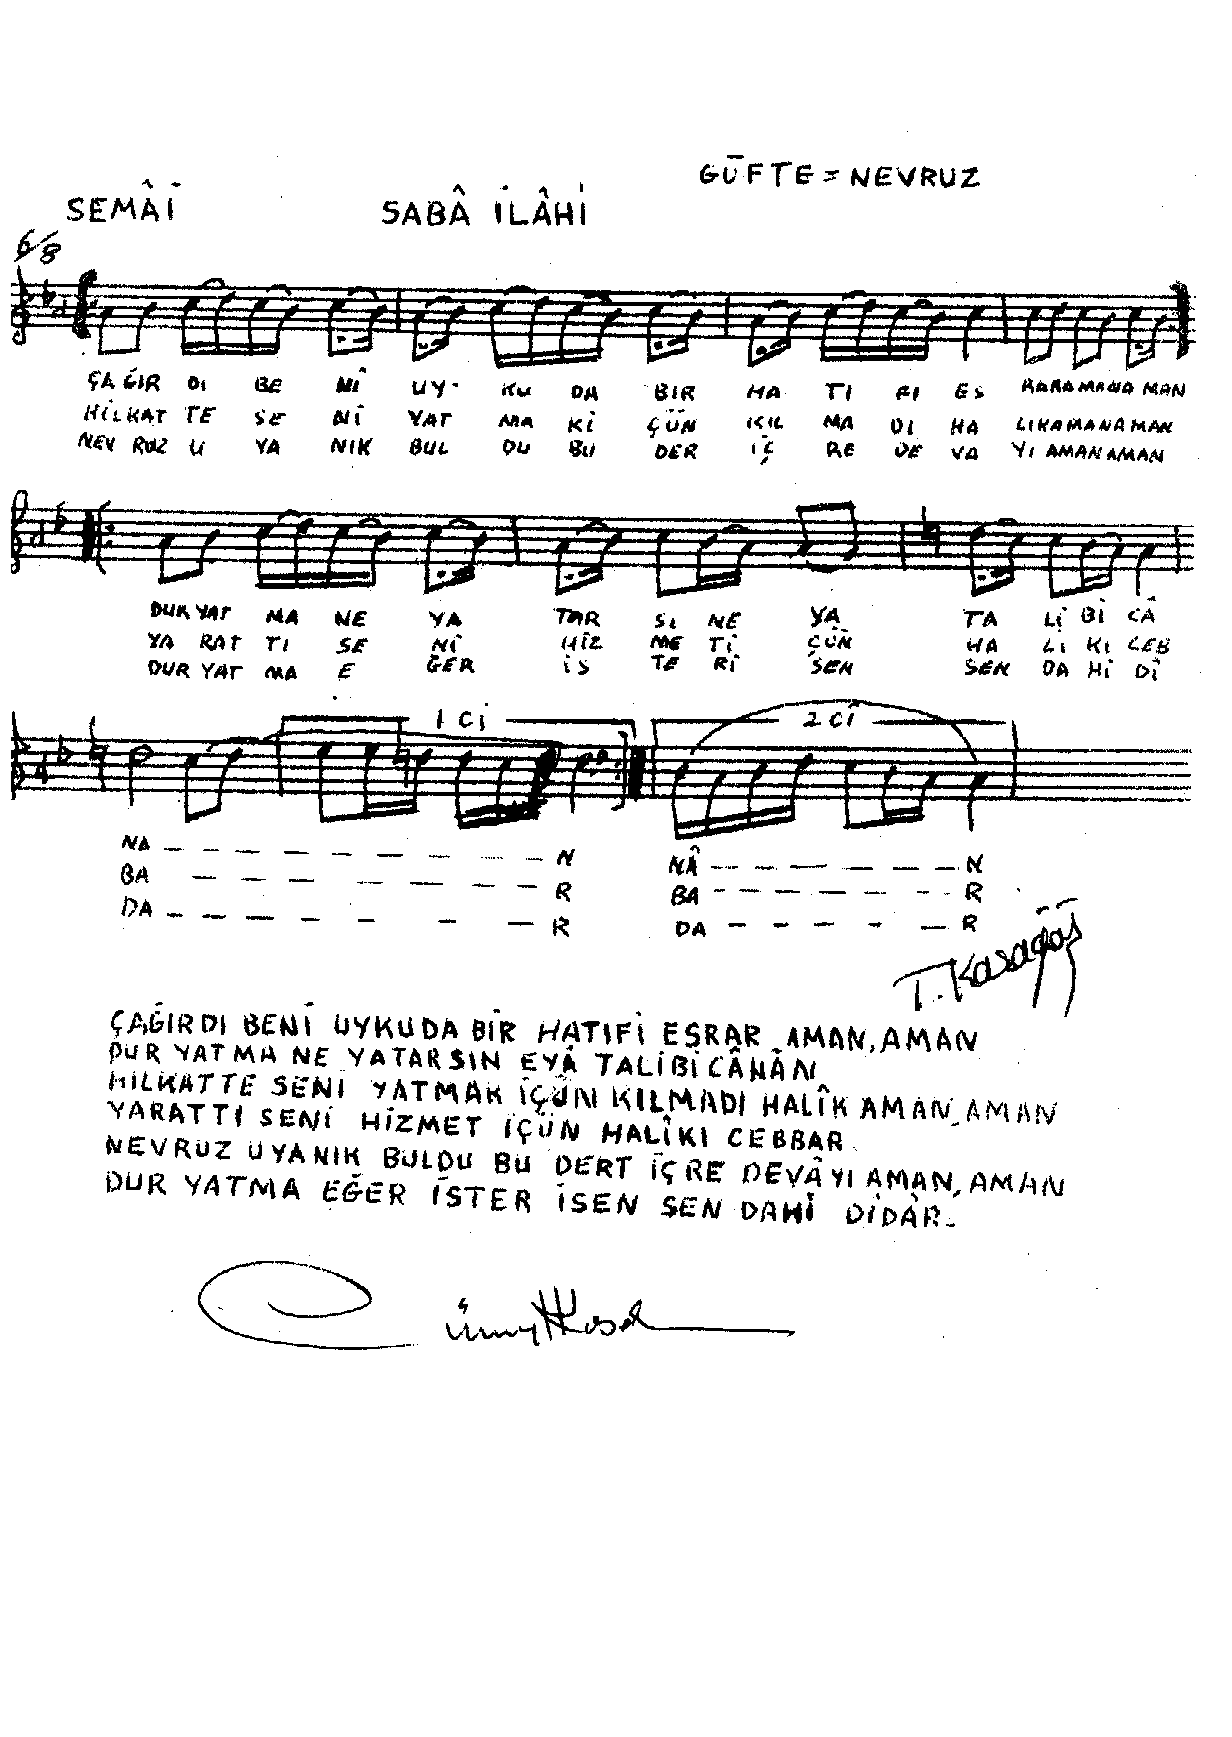 GÜFTE = NEVRUZ
SEMÂİ SABÂ İLÂHİ
6/8
ÇA ĞIR DI BE NÎ UY- KU DA BIR HA TI FI ES RARAMANA MAN
HİLKAT TE SE NÎ YAT MA KÎ ÇÜN KIL MA DI HA LIKAMANAMAN
NEV RUZ U YA NIK BUL DU BU DER İÇ RE DE VA YI AMANAMAN
DUR YAT MA NE YA TAR SI NE YA TA Lİ Bİ CÂ
YA RAT TI SE NÎ HİZ ME TÎ ÇÜN HA Lİ KI CEB
DUR YAT MA E ĞER İS TE RÎ SEN SEN DA HÎ DÎ
1 Cİ 2 CÎ
NA _ _ _ _ _ _ _ _ N NÂ _ _ _ _ _ N
BA _ _ _ _ _ _ _ R BA _ _ _ _ _ _ R
DA _ _ _ _ _ _ _ R DA _ _ _ _ _ R
T. Karagöz
ÇAĞIRDI BENİ UYKUDA BİR HATIFİ EŞRAR AMAN, AMAN
DUR YATMA NE YATARSIN EYÂ TALİBİ CÂNÂN
HİLKATTE SENİ YATMAK İÇÜN KILMADI HALÎK AMAN, AMAN
YARATTI SENİ HİZMET İÇÜN HALÎKI CEBBAR
NEVRUZ UYANIK BULDU BU DERT İÇRE DEVÂYI AMAN, AMAN
DUR YATMA EĞER İSTER İSEN SEN DAHİ DİDÂR.